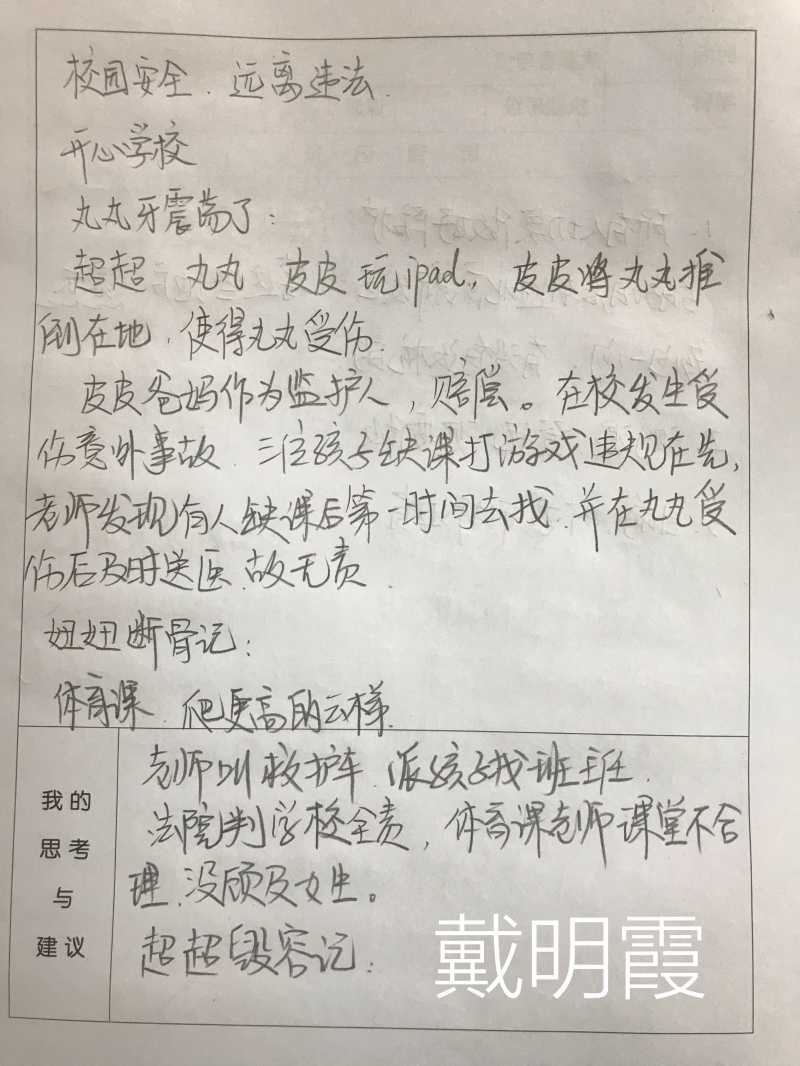 校园安全、远离违法
开心学校
丸丸牙震荡了：
超超 丸丸 皮皮玩ipad，皮皮将丸丸推
倒在地，使得丸丸受伤.
皮皮爸妈作为监护人，赔偿。在校发生受
伤意外事故、三位孩子缺课打游戏违规在先,
老师发现有人缺课后第一时间去找、并在丸丸受
伤后及时送医、故无责.
妞妞断骨记：
体育课、爬更高的云梯.
老师叫救护车、派孩子找班主任.
法院判学校全责，体育课老师课堂不合
理、没顾及女生。
超超毁容记：
我的
思考
与
建议
戴明霞